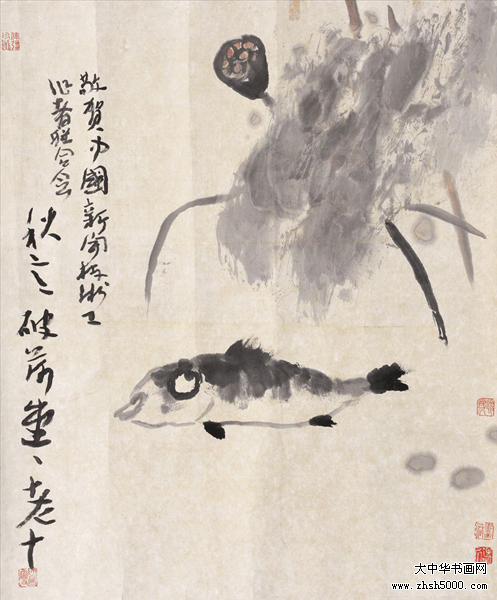 敬贺中國新闻技术工
作者联合会
秋之破荷 老十
大中华书画网
www.zhsh5000.com